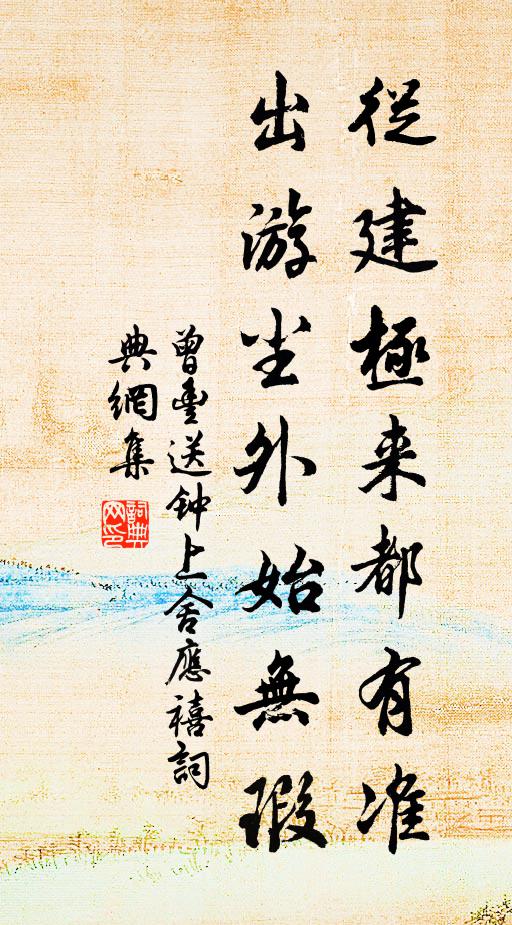 從建極来都有准
出游尘外始無瑕
曾豊送钟上舍應禧詞
典網集
詞典网印